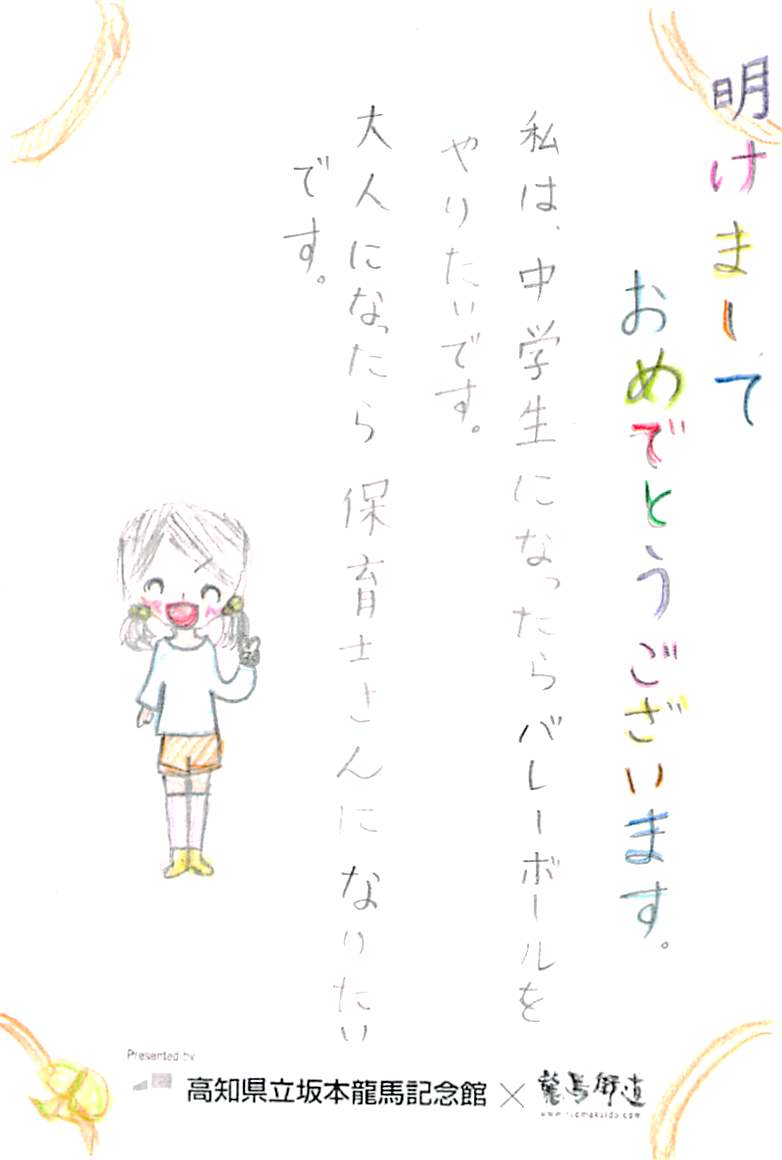 明けまして
おめでとうございます。
私は、中学生になったらバレーボールを
やりたいです。
大人になったら 保育士さんになりたい
です。
Presented by
高知県立坂本龍馬記念館×龍馬街道
www.ryomakaido.com